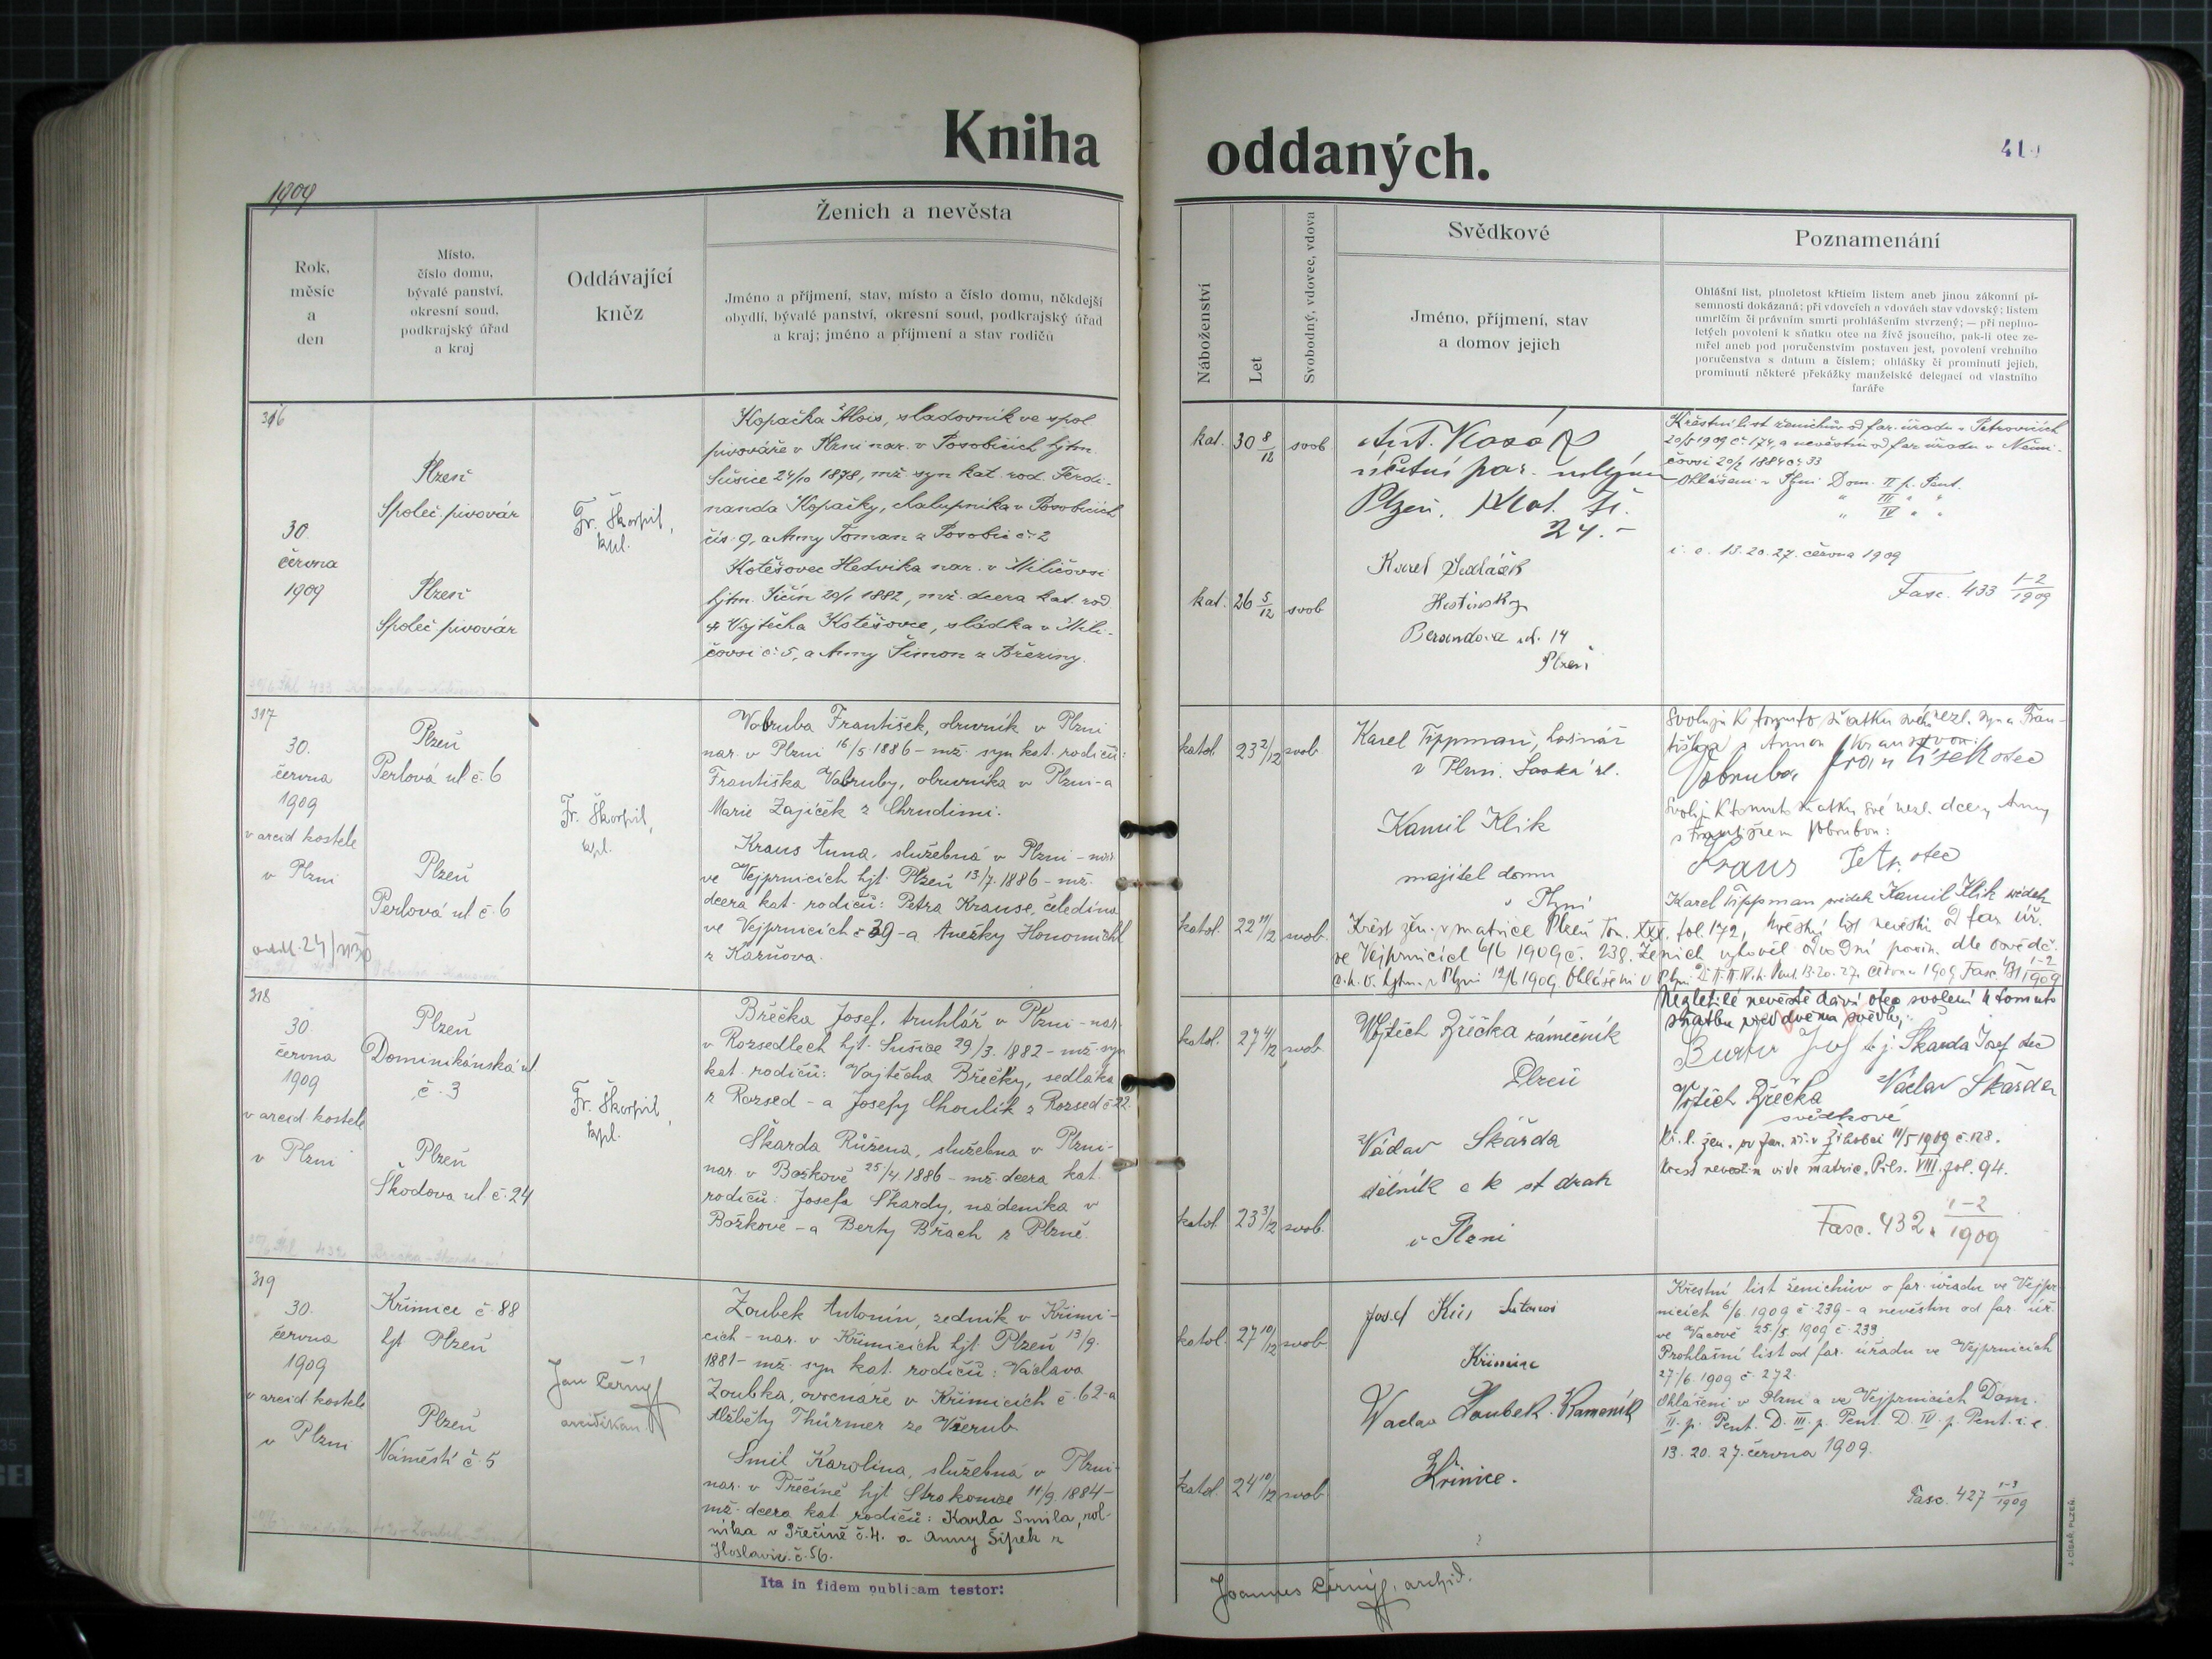 Kniha
oddaných.
1909
Ženich a nevěsta
Rok,
měsíc
a
den
Místo,
číslo domu,
bývalé panství,
okresní soud,
podkrajský úřad
a kraj
Oddávající
kněz
Jméno a příjmení, stav, místo a číslo domu, někdejší
obydlí, bývalé panství, okresní soud, podkrajský úřad
a kraj; jméno a příjmení a stav rodičů
Náboženství
Let
Svobodný, vdovec, vdova
Svědkové
Jméno, příjmení, stav
a domov jejich
Poznamenání
Ohlášní list, plnoletost křticím listem aneb jinou zákonní pí-
semností dokázaná; při vdovcích a vdovách stav vdovský; listem
umrlčím či právním smrti prohlášením stvrzený; — při neplno-
letých povolení k sňatku otce na živě jsoucího, pak-li otec ze-
mřel aneb pod poručenstvím postaven jest, povolení vrchního
poručenstva s datum a číslem; ohlášky či prominutí jejich,
prominutí některé překážky manželské delegací od vlastního
faráře
316
30.
června
1909
Plzeň
Společ. pivovár
Plzeň
Společ. pivovár
Fr. Škorpil,
kpl.
Kopačka Alois, sladovník ve spol.
pivováře v Plzni nar. v Posobicích hjtm.
Sušice 24/10 1878, mž. syn kat. rod. Ferdi-
nanda Kopačky, chalupníka v Posobicích
čís. 9, a Anny Toman z Posobic č. 2
Kotěšovec Hedvika nar. v Miličovsi
hjtm. Jičín 20/1 1882, mž. dcera kat. rod.
Vojtěcha Kotěšovce, sládka v Mili-
čovsi č. 5, a Anny Šimon z Březiny.
kat. 30 8/12 svob.
kat. 26 5/12 svob.
Plzeň.
24.-
Karel Sedláček
Plzeň
Křestní list ženichův od far. úřadu v Petrovicích
20/5 1909 č. 174, a nevěstin od far. úřadu v Němi-
čovsi 20/2 1884 č. 33
Ohlášeni v Plzni Dom. II p. Pent.
" III " "
" IV " "
i. e. 13. 20. 27. června 1909
Fasc. 433 1-2/1909
317
30.
června
1909
v arcid kostele
v Plzni
Plzeň
Perlová ul č. 6
Plzeň
Perlová ul č. 6
Fr. Škorpil,
kpl.
Vobruba František, obuvník v Plzni
nar. v Plzni 16/5 1886 - mž. syn kat. rodičů:
Františka Vobruby, obuvníka v Plzni - a
Marie Zajíček z Chrudimi.
Kraus Anna, služebná v Plzni - nar.
ve Vejprnicích hjt. Plzeň 13/7. 1886 - mž.
dcera kat. rodičů: Petra Krause, čeledína
ve Vejprnicích č 39 - a Anežky Honomichl
z Kozňova.
katol. 23 2/12 svob.
katol. 22 11/12 svob.
Karel Tippman,
v Plzni.
Kamil Klik
majitel domu
v Plzni
Vobruba František otec
Kraus Petr, otec
Karel Tippman svědek Kamil Klik svědek
Křest žen. v matrice Plzeň Tom. XXX. fol. 172, křestní list nevěsti z far. úř.
ve Vejprnicích 6/6 1909 č. 238. Ženich vyhověl
Plzni 12/6 1909 Ohlášeni v Plzni
318
30.
června
1909
v arcid kostele
v Plzni
Plzeň
Dominikánská ul
č. 3
Plzeň
Škodova ul č. 24
Fr. Škorpil,
kpl.
Břečka Josef, truhlář v Plzni - nar.
v Rozsedlech hjt. Sušice 29/3. 1882 - mž. syn
kat. rodičů: Vojtěcha Břečky, sedláka
z Rozsed - a Josefy Choulík z Rozsed č 22.
Škarda Růžena, služebna v Plzni -
nar. v Božkově 25/4. 1886 - mž. dcera kat.
rodičů: Josefa Škardy, nádeníka v
Božkově - a Berty Břach z Plzně.
katol. 27 4/12 svob.
katol. 23 3/12 svob.
Vojtěch Břečka zámečník
Plzeň
Václav Škárda
dělník c k st drah
v Plzni
Nezletilé nevěstě dává otec svolení k tomuto
sňatku před dvěma svědky,
t. j. Škarda Josef otec
Vojtěch Břečka Václav Škárda
svědkové
Kř. l. žen. 11/5 1909 č. 128.
křest nevěstin vide matric. Pils. VIII. fol. 94.
Fasc. 432. 1-2/1909
319
30.
června
1909
v arcid kostele
v Plzni
Křimice č. 88
hjt Plzeň
Plzeň
Náměstí č. 5
Jan Černý
arcidíkan
Zoubek Antonín, zedník v Křimi-
cích - nar. v Křimicích hjt. Plzeň 13/9.
1881 - mž. syn kat. rodičů: Václava
Zoubka, ovenáře v Křimicích č. 62 - a
Alžběty Thürmer ze Všerub.
Smil Karolina, služebná v Plzni -
nar. v Přečíně hjt. Strakonice 11/9. 1884 -
mž. dcera kat. rodičů: Karla Smila, rol-
níka v Přečíně č. 4. a Anny Šípek z
Hoslavic. č. 56.
katol. 27 10/12 svob.
katol. 24 10/12 svob.
Josef
Křimice
Waclav Zoubek. Kameník
Křimice.
Křestní list ženichův o far. úřadu ve Vejpr-
nicích 6/6. 1909 č. 239 - a nevěstin od far. úř.
ve Vacově 25./5. 1909 č. 233
Prohlašní list od far. úřadu ve Vejprnicích
27/6. 1909 č. 272.
Ohlášeni v Plzni a ve Vejprnicích Dom.
II. p. Pent. D. III. p. Pent. D. IV. p. Pent. i. e.
13. 20. 27. června 1909.
Fasc. 427 1-3/1909
Ita in fidem publicam testor:
Joannes Černý, archid.
J. CÍSAŘ, PLZEŇ.